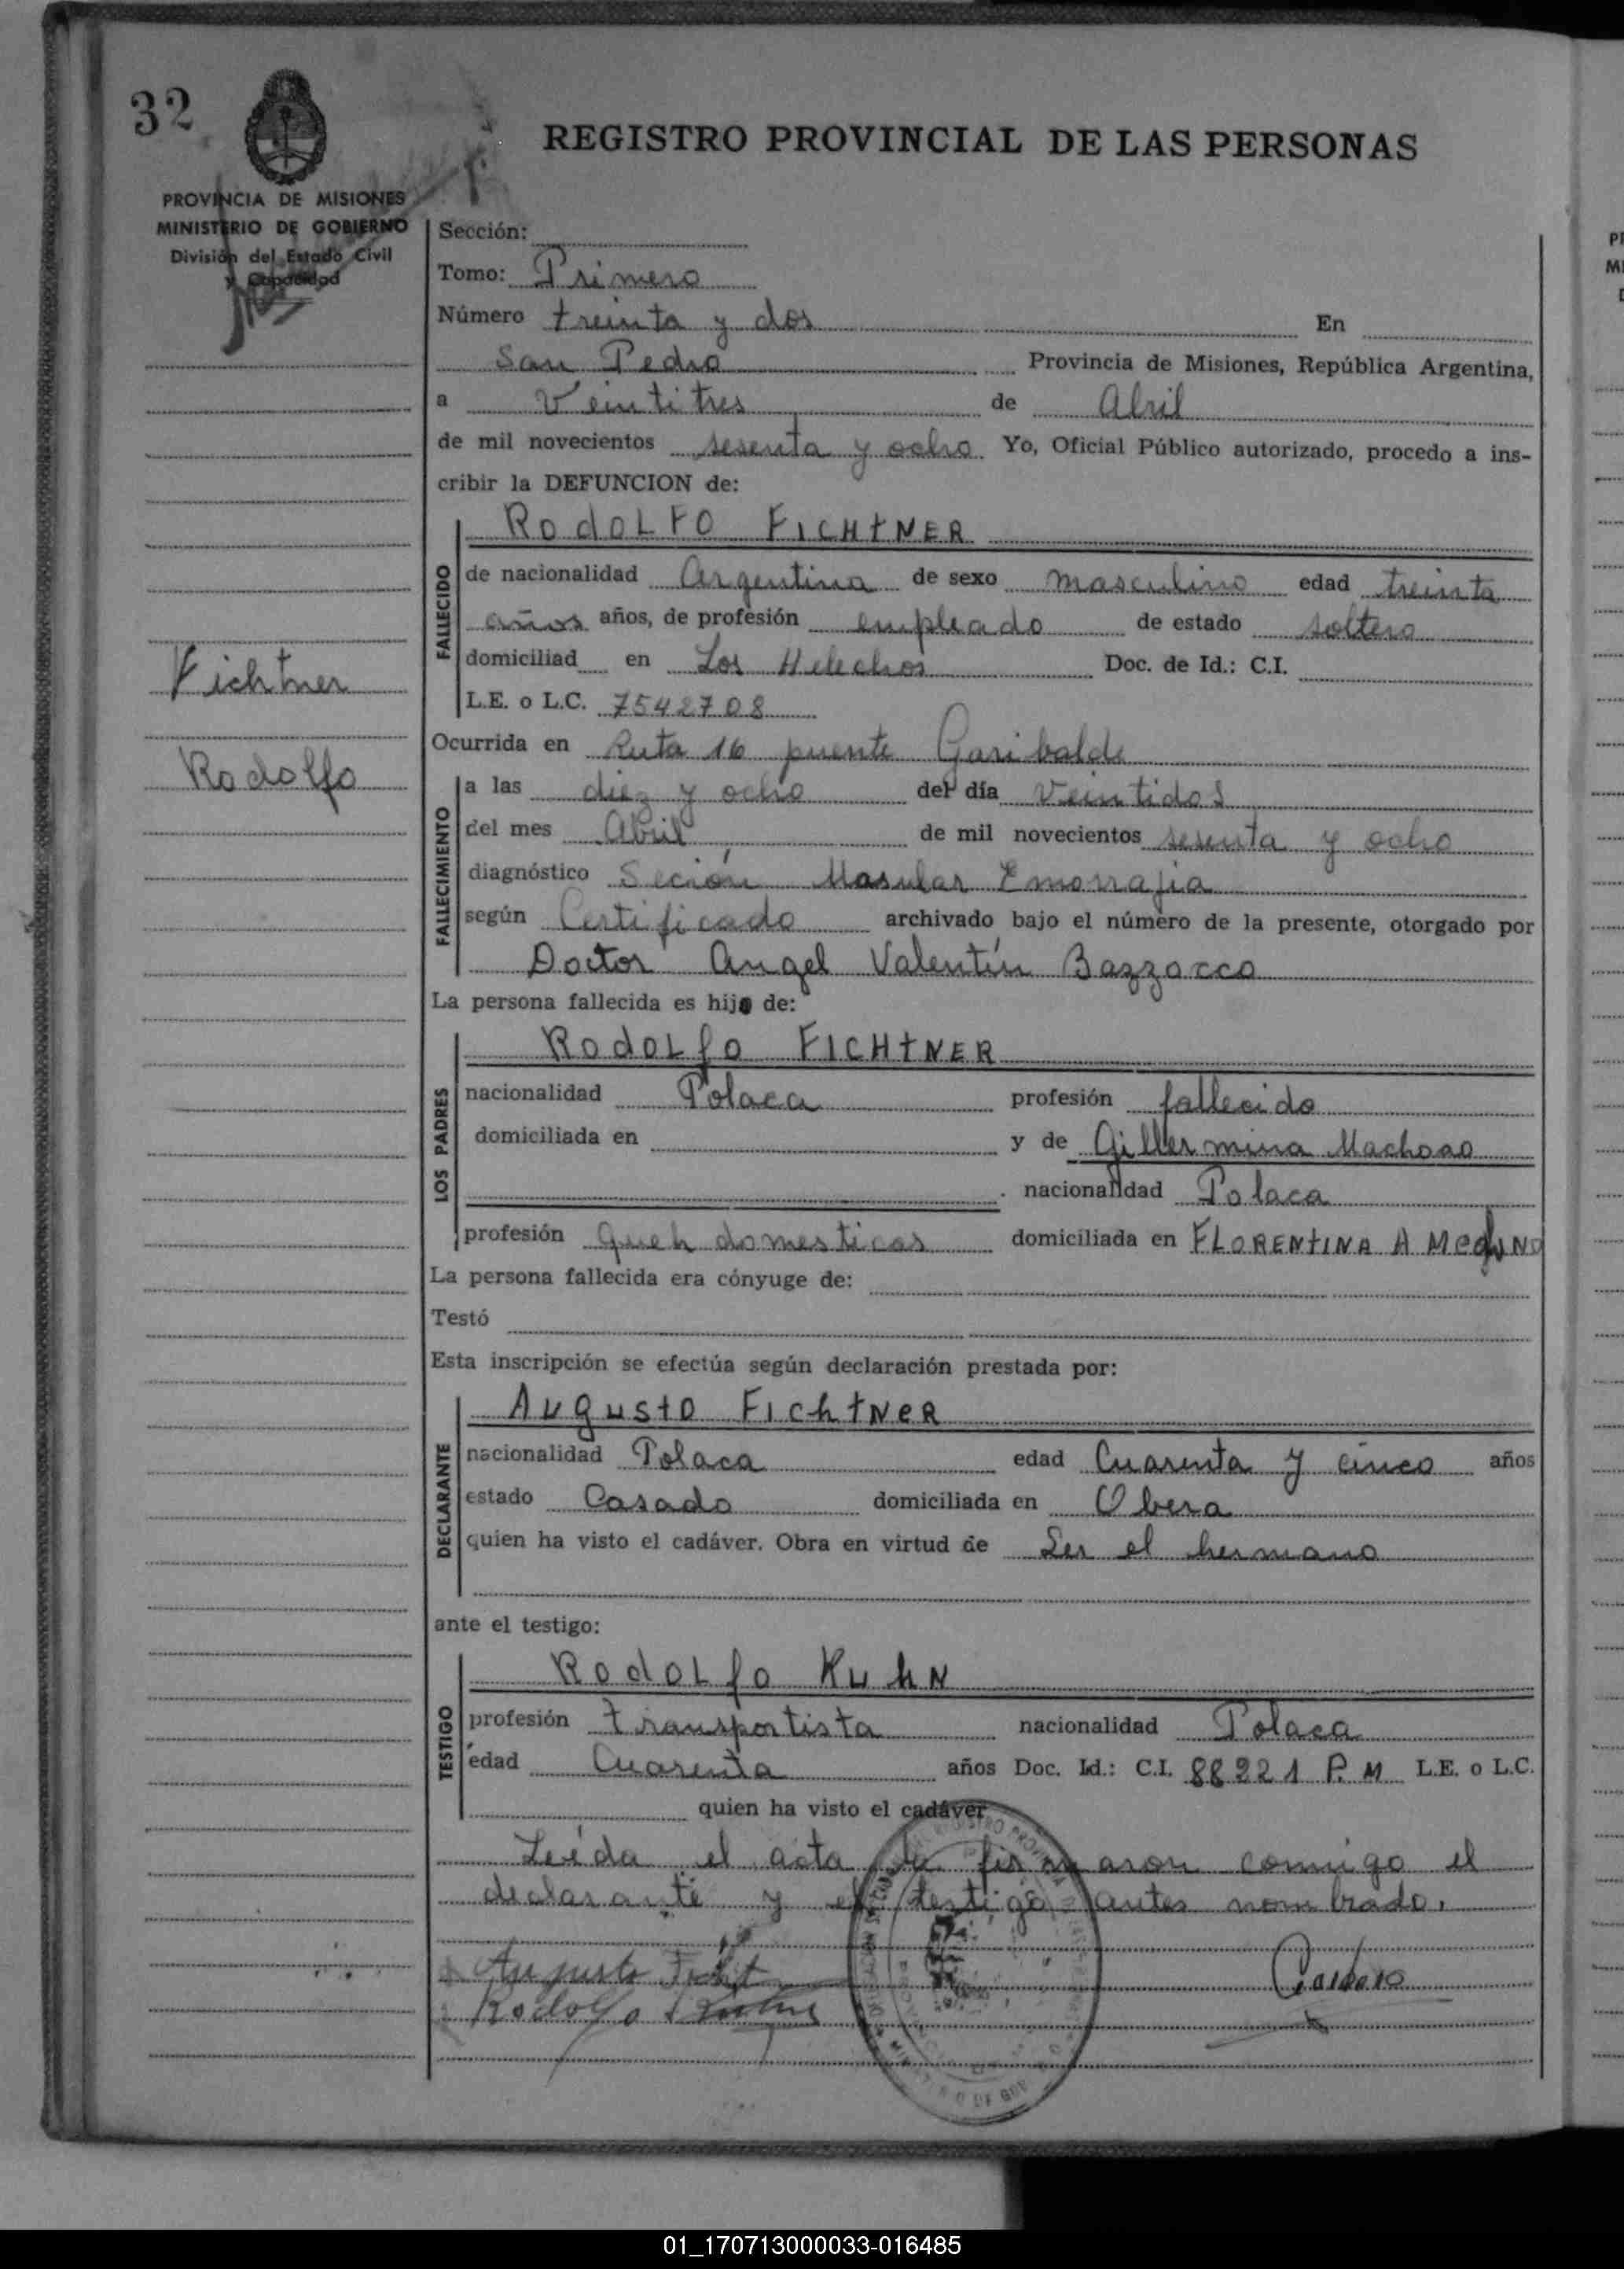 32
REGISTRO PROVINCIAL DE LAS PERSONAS
PROVINCIA DE MISIONES
MINISTERIO DE GOBIERNO
División del Estado Civil
y Capacidad
Sección:
Tomo: Primero
Número treinta y dos En
San Pedro Provincia de Misiones, República Argentina,
a Veintitres de Abril
de mil novecientos sesenta y ocho Yo, Oficial Público autorizado, procedo a ins-
cribir la DEFUNCION de:
RodoLFO FICHtNER
FALLECIDO
de nacionalidad Argentina de sexo masculino edad treinta
años años, de profesión empleado de estado soltero
domiciliad en Los Helechos Doc. de Id.: C.I.
L.E. o L.C. 7542708
Fichtner
Rodolfo
Ocurrida en Ruta 16 puente Garibalde
FALLECIMIENTO
a las diez y ocho del día Veintidos
del mes Abril de mil novecientos sesenta y ocho
diagnóstico Seción Masular Emorrajia
según Certificado archivado bajo el número de la presente, otorgado por
Doctor Angel Valentín Bazzocco
La persona fallecida es hijo de:
LOS PADRES
RodoLfo FICHtNER
nacionalidad Polaca profesión fallecido
domiciliada en y de Gillermina Machoao
nacionalidad Polaca
profesión queh domesticas domiciliada en FLORENtINA A
La persona fallecida era cónyuge de:
Testó
Esta inscripción se efectúa según declaración prestada por:
DECLARANTE
AugustO FIchtNeR
nacionalidad Polaca edad Cuarenta y cinco años
estado Casado domiciliada en Obera
quien ha visto el cadáver. Obra en virtud de Ser el hermano
ante el testigo:
TESTIGO
RodoLfo KuhN
profesión transportista nacionalidad Polaca
edad Cuarenta años Doc. Id.: C.I. 88221 P.M L.E. o L.C.
quien ha visto el cadáver
Leida el acta la firmaron conmigo el
declarante y el testigo antes nombrado.
Augusto Ficht
Rodolfo
01_170713000033-016485